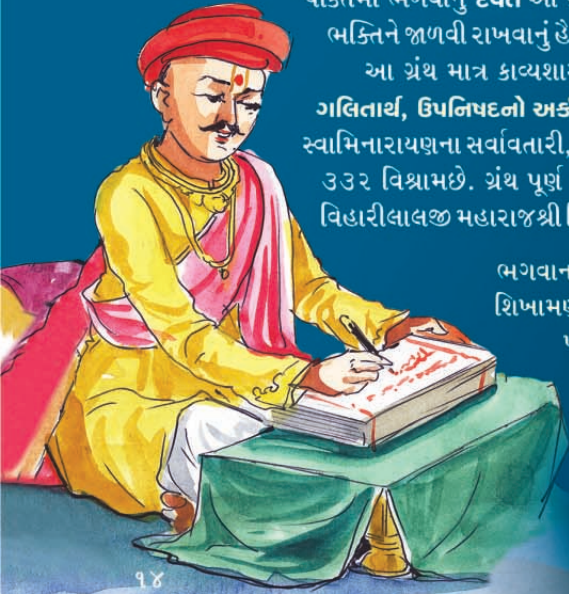 ભગવાનનું દૈવત આ
ભક્તિને જાળવી રાખવાનું હૈ
આ ગ્રંથ માત્ર કાવ્યશા
ગલિતાર્થ, ઉપનિષદનો અર્ક
સ્વામિનારાયણના સર્વાવતારી,
૩૩૨ વિશ્રામછે. ગ્રંથ પૂર્ણ
વિહારીલાલજી મહારાજશ્રી
ભગવાન
શિખામણ
૧૪